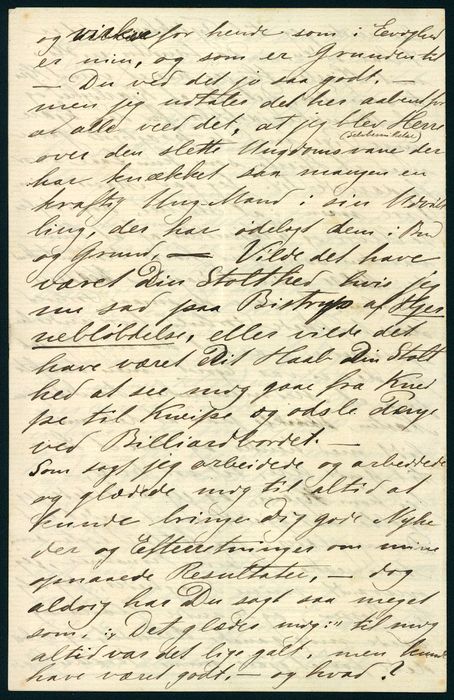 og virke for hende som i Evighed
er min, og som er Grunden til
— Du ved det jo saa godt, —
men jeg udtaler det her aabent for
at alle veed det, at jeg blev Herre
(Selvbesmittelse)
over den slette Ungdomsvane der
har knækket saa mangen en
kraftig Ung Mand i sin Udvik
ling, der har ødelagt dem i Bund
og Grund, — Vilde det have
været Din Stolthed hvis jeg
nu sad paa Bistrup af Hjer
neblødelse, eller vilde det
have været Dit Haab Din Stolt
hed at see mig gaae fra Knei
pe til Kneipe og ødsle Penge
ved Billiardbordet. —
Som sagt jeg arbeidede og arbeidede
og glædede mig til altid at
kunde bringe Dig gode Nyhe
der og Efterretninger om mine
opnaaede Resultater, — dog
aldrig har Du sagt saa meget
som, "Det glæder mig:" til mig
altid var det lige galt, men kunde
have været godt, — og hvad?